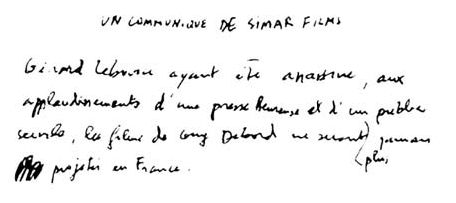 UN COMMUNIQUE DE SIMAR FILMS
Gérard Lebovici ayant été assassiné, aux
applaudissements d'une presse heureuse et d'un public
servile, les films de Guy Debord ne seront jamais
plus,
projetés en France.